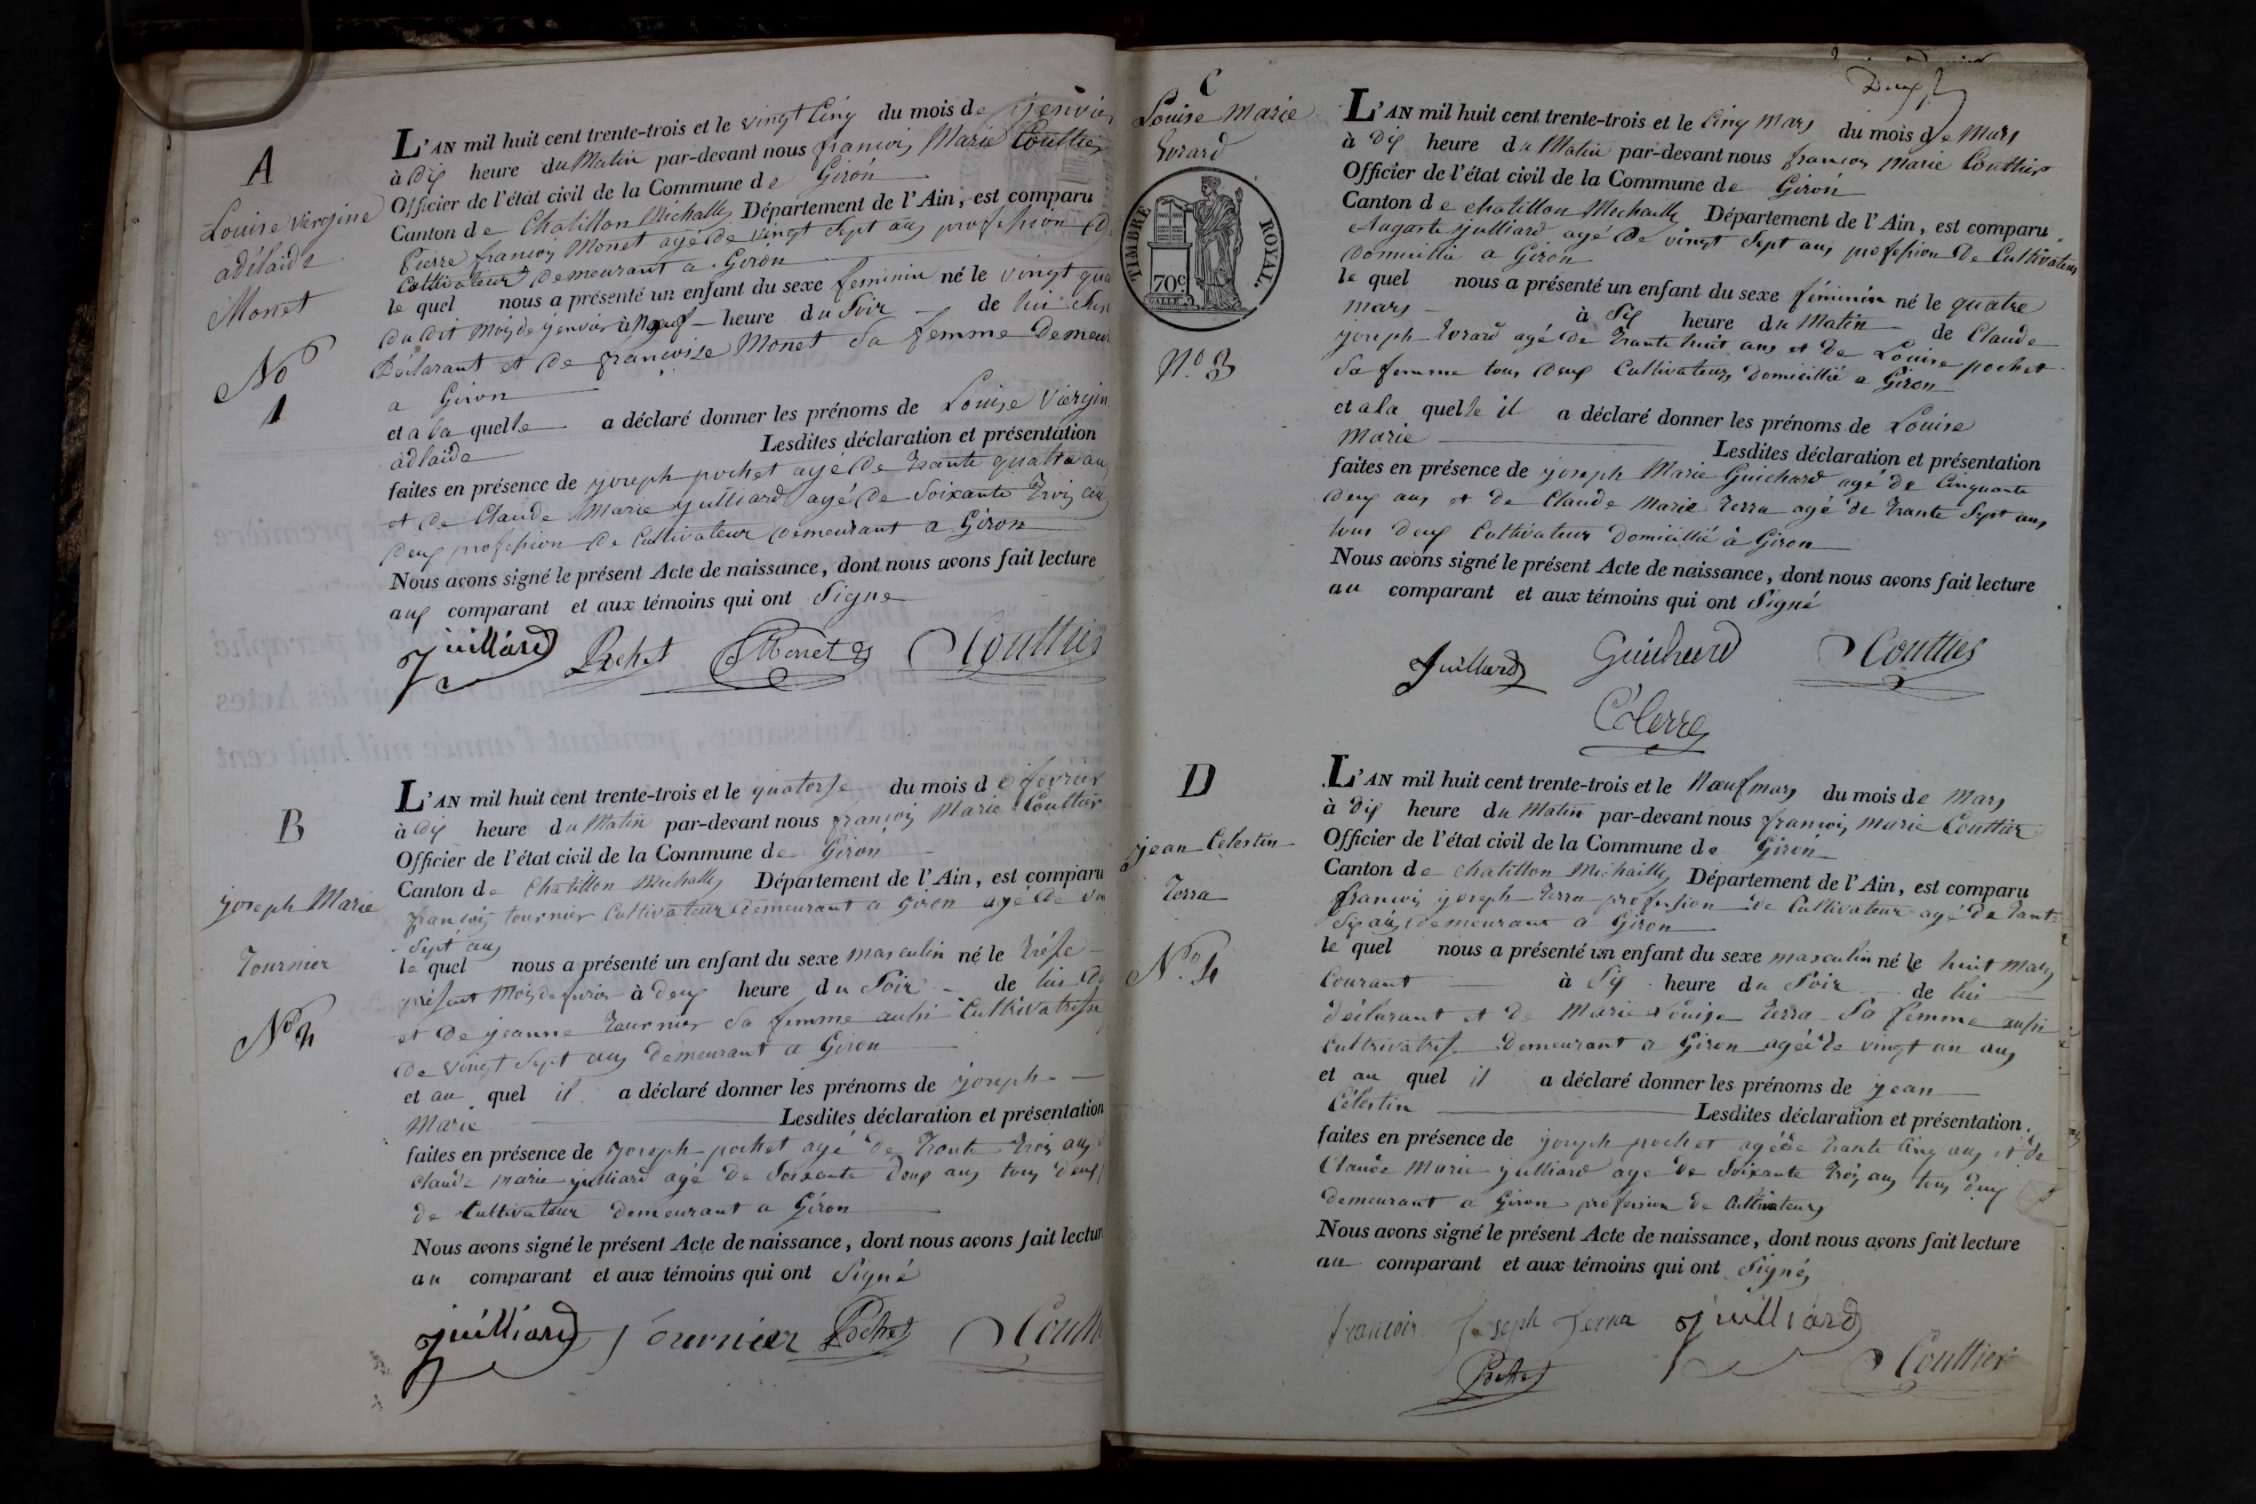 A
Louise vierginie
adélaide
Monet
No
1
L'AN mil huit cent trente-trois et le vingt Cinq du mois de jenvier
à dix heure du Matin par-devant nous francois Marie Couttier
Officier de l'état civil de la Commune de Giron
Canton de Chatillon Michaille Département de l'Ain, est comparu
Pierre francois Monet agé de vingt Sept ans profession de
Cultivateur demeurant a Giron
le quel nous a présenté un enfant du sexe feminin né le vingt
du dit mois de jenvier à heure du Soir de lui
Déclarant et de francoise Monet Sa femme
a Giron
et a la quelle a déclaré donner les prénoms de Louise
adlaide Lesdites déclaration et présentation
faites en présence de joseph pochet agé de trante quatre ans
et de Claude Marie julliard agé de Soixante trois
deux profession de Cultivateur demeurant a Giron
Nous avons signé le présent Acte de naissance, dont nous avons fait lecture
aux comparant et aux témoins qui ont Signe
juilliard Pochet Monet Couttier
B
joseph Marie
Tournier
No 2
L'AN mil huit cent trente-trois et le quatorse du mois de fevrier
à dix heure du Matin par-devant nous francois Marie Couttier
Officier de l'état civil de la Commune de Giron
Canton de Chatillon Michaille Département de l'Ain, est comparu
francois tournier Cultivateur demeurant a Giron agé de
Sept ans
le quel nous a présenté un enfant du sexe masculin né le trése
présent Mois de fevrier à deux heure du Soir de lui
et de jeanne tournier Sa femme aussi Cultivatrisse
de vingt Sept ans demeurant a Giron
et au quel il a déclaré donner les prénoms de joseph
Marie Lesdites déclaration et présentation
faites en présence de joseph pochet agé de trante trois ans
Claude marie julliard agé de Soixante deux ans tous deux
de Cultivateur demeurant a Giron
Nous avons signé le présent Acte de naissance, dont nous avons fait lecture
au comparant et aux témoins qui ont Signé
juilliard Tournier Pochet
Deux
C
Louise Marie
TIMBRE ROYAL.
70c
No. 3
L'AN mil huit cent trente-trois et le Cinq Mars du mois de Mars
à dix heure du Matin par-devant nous francois marie Couttier
Officier de l'état civil de la Commune de Giron
Canton de chatillon Michaille Département de l'Ain, est comparu
Auguste julliard agé de vingt Sept ans profession de Cultivateur
domicillié a Giron
le quel nous a présenté un enfant du sexe féminin né le quatre
mars à Six heure du Matin de Claude
joseph agé de trante huit ans et de Louise pochet
Sa femme tous deux Cultivateurs domicillié a Giron
et a la quelle il a déclaré donner les prénoms de Louise
Marie Lesdites déclaration et présentation
faites en présence de joseph Marie Guichard agé de Cinquante
deux ans et de Claude Marie terra agé de trante Sept ans
tous deux Cultivateur Domicillié à Giron
Nous avons signé le présent Acte de naissance, dont nous avons fait lecture
au comparant et aux témoins qui ont Signé
Juilliard Guichard Couttier
D
jean Celestin
Terra
No. 4
L'AN mil huit cent trente-trois et le Nœuf mars du mois de Mars
à dix heure du Matin par-devant nous francois marie Couttier
Officier de l'état civil de la Commune de Giron
Canton de chatillon Michaille Département de l'Ain, est comparu
francois joseph terra profession de Cultivateur agé de trante
Six ans demeurant a Giron
le quel nous a présenté un enfant du sexe masculin né le huit mars
Courant à Six heure du Soir de lui
déclarant et de Marie Louise terra Sa femme aussi
Cultivatrisse demeurant a Giron agée de vingt un ans
et au quel il a déclaré donner les prénoms de jean
Célestin Lesdites déclaration et présentation
faites en présence de joseph pochet agé de trante Cinq ans et de
Claude Marie julliard age de Soixante trois ans tous deux
demeurant a Giron profession de Cultivateurs
Nous avons signé le présent Acte de naissance, dont nous avons fait lecture
au comparant et aux témoins qui ont Signés
francois Joseph Terra juilliard
Pochet Couttier